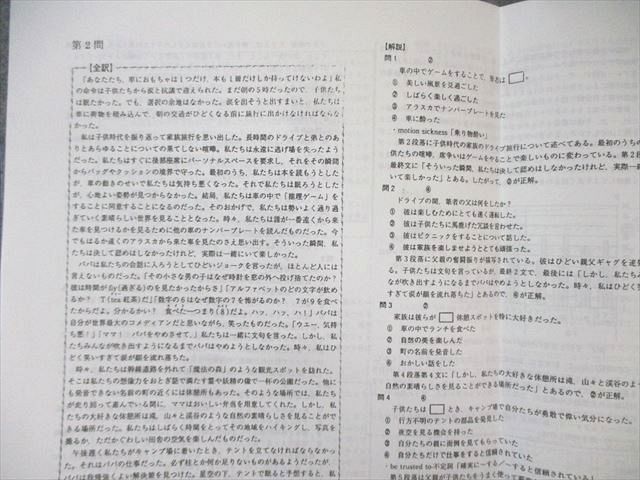 第2問
【全訳】
「あなたたち，車におもちゃは1つだけ，本も1冊だけしか持ってけないわよ」私
の命令は子供たちから涙と抗議で迎えられた。まだ朝の5時だったので，子供たち
は眠たかった。でも，選択の余地はなかった。涙を出そうと出すまいと，私たちは
車に荷物を積み込んで，朝の交通がひどくなる前に旅行に出かけなければならなかっ
た。
私は子供時代を振り返って家族旅行を思い出した。長時間のドライブと弟とのあ
りとあらゆることについての果てしない喧嘩。私たちは永遠に逃げ場を失ったよう
だった。私たちはすぐに後部座席にパーソナルスペースを要求し，それをその瞬間
からバッグやクッションの境界で守った。最初のうち，私たちは本を読もうとした
が，車の動きのせいで私たちは気持ち悪くなった。それで私たちは眠ろうとした
が，心地よい姿勢が見つからなかった。結局，私たちは車の中で「推理ゲーム」を
することに同意することになるのだった。そのおかげで，私たちは勢いよく通り過
ぎていく素晴らしい世界を見ることとなった。時々，私たちは誰が一番遠くから来
た車を見つけるかを見るために他の車のナンバープレートを読んだものだった。今
でもはるか遠くのアラスカから来た車を見たのさえ思い出す。そういった瞬間，私
たちは決して認めはしなかったけれど，実際一緒にいて楽しかった。
パパは私たちの会話に入ろうとしてひどいジョークを言ったが，ほとんど人には
言えないものだった。「その小さな男の子はなぜ時計を窓の外へ投げ捨てたのか？
彼は時間がfly(過ぎる)のを見たかったからさ」「アルファベットのどの文字が飲め
るか？　T(tea 紅茶)だ」「数字の6はなぜ数字の7を怖がるのか？　7が9を食べ
たからだよ。分かるかい？　食べた一つまり(8)だよ。ハッ，ハッ，ハ！」パパは
自分が世界最大のコメディアンだと思いながら，笑ったものだった。「ウエー，気持
ち悪！」「ママ！　パパをやめさせて。」私たちは一緒に文句を言った。しかし，私
たちみんなが吹き出すようになるまでパパはやめようとしなかった。時々，私はひ
どく笑いすぎて涙が顔を流れ落ちた。
時々，私たちは幹線道路を外れて「魔法の森」のような観光スポットを訪れた。
そこは私たちの想像力をおとぎ話で満たす霊や妖精の像で一杯の公園だった。他に
も発音できない名前の町の近くには休憩所もあった。そのような場所では，私たち
が走り回って遊んでいる間に，ママはおいしい弁当を用意してくれた。しかし，私
たちの大好きな休憩所は滝，山々と渓谷のような自然の素晴らしさを見ることがで
きる場所だった。私たちはしばらく時間をとってその地域をハイキングし，写真を
撮るか，ただかぐわしい田舎の空気を楽しんだものだった。
午後遅く私たちがキャンプ場に着いたとき，テントを立てなければならなかっ
た。それはパパの仕事だった。必ず柱とか何か足りないものがあるようだったが，
パパは段後強くよい解決策を見つけた。星空の下，テントで眠ると予想すると，私
【解説】
問1　②
車の中でゲームをすることで，筆者は□。
① 美しい風景を見過ごした
② しばらく楽しく過ごした
③ アラスカでナンバープレートを見た
④ 車に酔った
・motion sickness「乗り物酔い」
第2段落で子供時代の家族のドライブ旅行について述べてある。最初のうちの
供たちの喧嘩，席争いはゲームをやることで楽しいものに変わっている。第2段
最終文に「そういった瞬間，私たちは決して認めはしなかったけれど，実際一緒
いて楽しかった」とある。したがって，②が正解。
問2　④
ドライブの間，筆者の父は何をしたか？
① 彼は楽しむためにとても速く運転した。
② 彼は子供たちに馬鹿げた冗談を言わせた。
③ 彼はピクニックをすることについて話した。
④ 彼は家族を楽しませようととても頑張った。
第3段落に父親の奮闘振りが描写されている。彼はひどい親父ギャグを連発
る。子供たちは文句を言っているが，最終2文で，最後には「しかし，私たち
なが吹き出すようになるまでパパはやめようとしなかった。時々，私はひどく
すぎて涙が顔を流れ落ちた」とあるので，④が正解。
問3　②
家族は彼らが□休憩スポットを特に大好きだった。
① 車の中でランチを食べた
② 自然の美を楽しんだ
③ 町の名前を発音した
④ おかしい話をした
第4段落第4文に「しかし，私たちの大好きな休憩所は滝，山々と渓谷のよ
自然の素晴らしさを見ることができる場所だった」とあるので，②が正解。
問4　④
子供たちは□とき，キャンプ場で自分たちが勇敢で偉い気分になった。
① 行方不明のテントの部品を発見した
② 夜空を見る機会を持った
③ 自分たちの親に面倒を見てもらっていた
④ 自分たちだけで仕事をすると信頼されていた
・be trusted to-不定詞「確実に〜する／〜すると信頼されて
第5段落は父親が子供たちをうまく使って